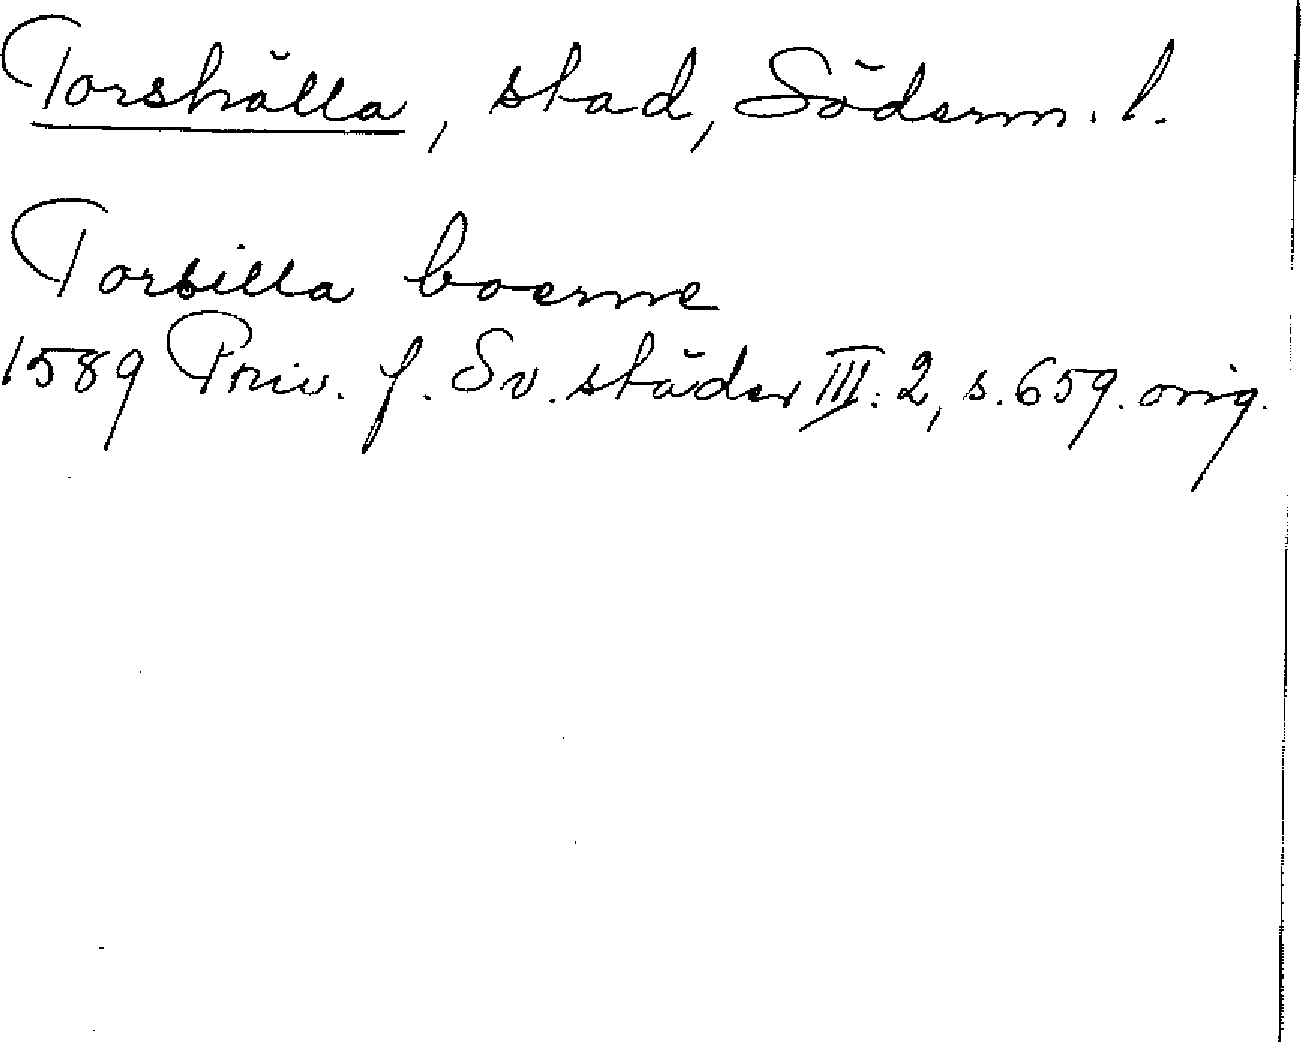 Torshälla, stad, Söderm. l.
Torsilla boerne
1589 Priv. f. Sv. städer III: 2, s. 659. orig.